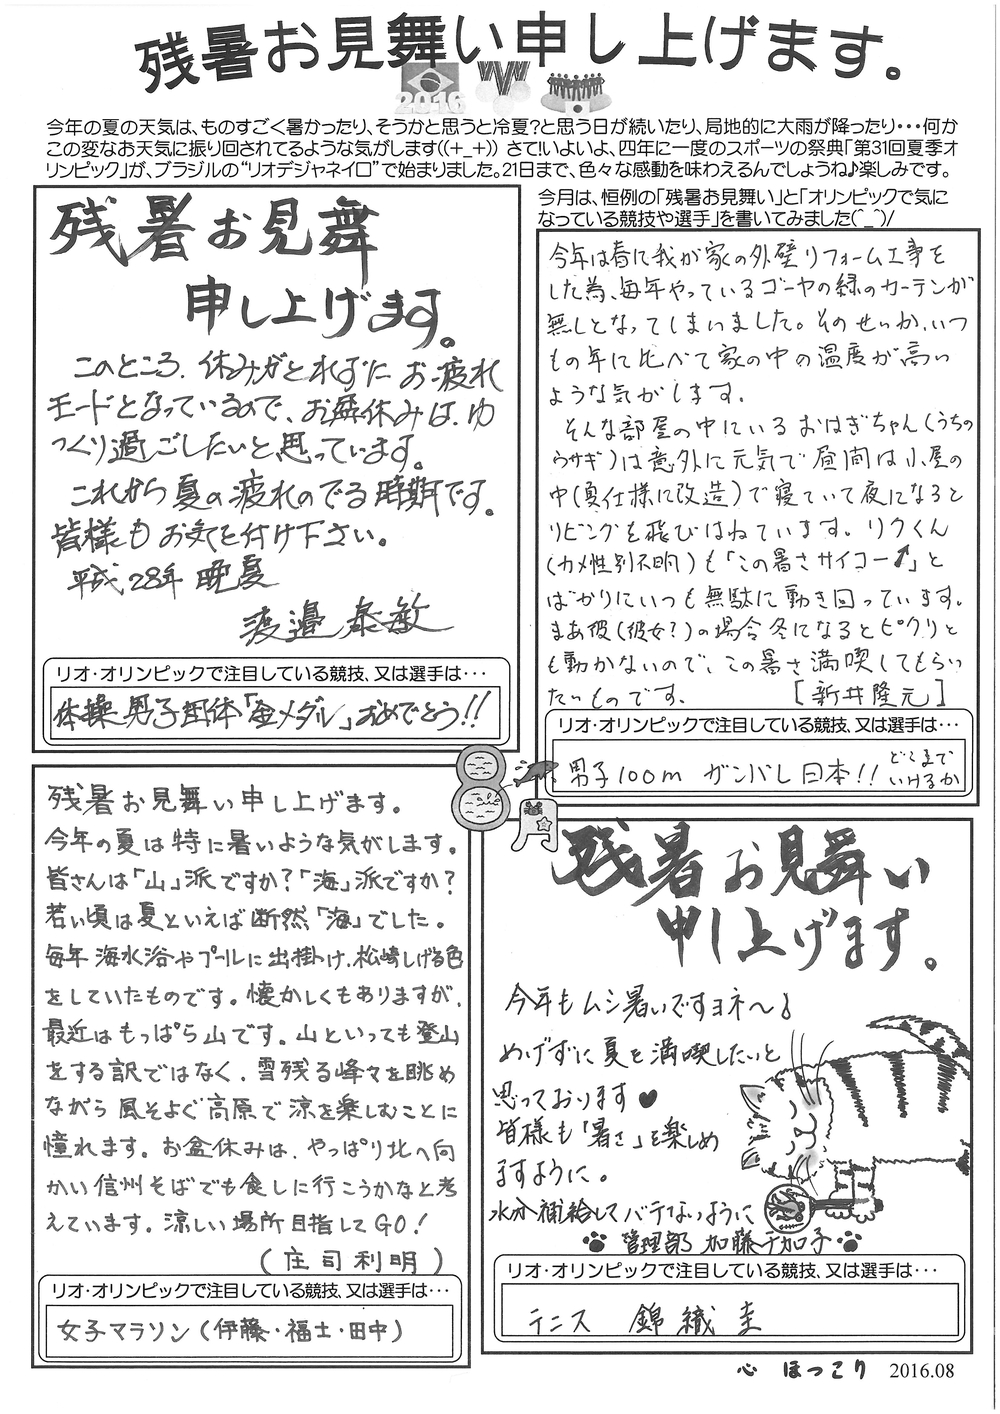 残暑お見舞い申し上げます。
2016
今年の夏の天気は、ものすごく暑かったり、そうかと思うと冷夏?と思う日が続いたり、局地的に大雨が降ったり・・・何か
この変なお天気に振り回されてるような気がします((+_+)) さて!いよいよ、四年に一度のスポーツの祭典「第31回夏季オ
リンピック」が、ブラジルの"リオデジャネイロ"で始まりました。21日まで、色々な感動を味わえるんでしょうね♪楽しみです。
今月は、恒例の「残暑お見舞い」と「オリンピックで気に
なっている競技や選手」を書いてみました(^_^)/
残暑お見舞
申し上げます。
このところ、休みがとれずにお疲れ
モードとなっているので、お盆休みは、ゆ
っくり過ごしたいと思っています。
これから夏の疲れのでる時期です。
皆様もお気を付け下さい。
平成28年 晩夏
渡邉泰敏
リオ・オリンピックで注目している競技、又は選手は・・・
体操 男子団体「金メダル」おめでとう!!
今年は春に我が家の外壁リフォーム工事を
した為、毎年やっているゴーヤの緑のカーテンが
無しとなってしまいました。そのせいか、いつ
もの年に比べて家の中の温度が高い
ような気がします。
そんな部屋の中にいるおはぎちゃん(うちの
ウサギ)は意外に元気で昼間は小屋の
中(夏仕様に改造)で寝ていて夜になると
リビングを飛びはねています。リクくん
(カメ性別不明)も「この暑さサイコー↑」と
ばかりにいつも無駄に動き回っています。
まあ彼(彼女?)の場合冬になるとピクリと
も動かないので、この暑さ満喫してもらい
たいものです。 [新井隆元]
リオ・オリンピックで注目している競技、又は選手は・・・
男子100m ガンバレ日本!! どこまで
いけるか
8月
残暑お見舞い申し上げます。
今年の夏は特に暑いような気がします。
皆さんは「山」派ですか?「海」派ですか?
若い頃は夏といえば断然「海」でした。
毎年海水浴やプールに出掛け、松崎しげる色
をしていたものです。懐かしくもありますが、
最近はもっぱら山です。山といっても登山
をする訳ではなく、雪残る峰々を眺め
ながら風そよぐ高原で涼を楽しむことに
憧れます。お盆休みは、やっぱり北へ向
かい信州そばでも食しに行こうかなと考
えています。涼しい場所目指してGO!
(庄司利明)
リオ・オリンピックで注目している競技、又は選手は・・・
女子マラソン(伊藤・福士・田中)
残暑お見舞い
申し上げます。
今年もムシ暑いですヨネ〜♪
めげずに夏を満喫したいと
思っております♥
皆様も「暑さ」を楽しめ
ますように。
水分補給してバテないように
管理部 加藤千加子
リオ・オリンピックで注目している競技、又は選手は・・・
テニス 錦織圭
心 ほっこり 2016.08